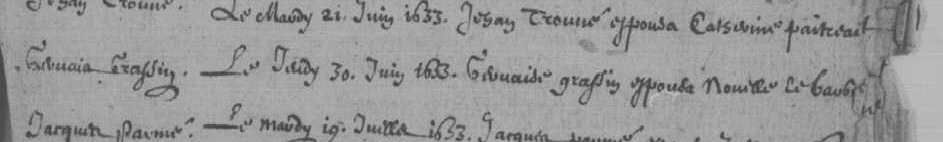 Jehan Trouvé. Le Mardy 21. Juin 1633. Jehan Trouvé espousa Catherine
Gervaise Grassin. Le Jeudy 30. Juin 1633. Gervaise grassin espousa Novelle Le barbi
Jacques parmé. Le mardy 19. Juillet 1633. Jacques